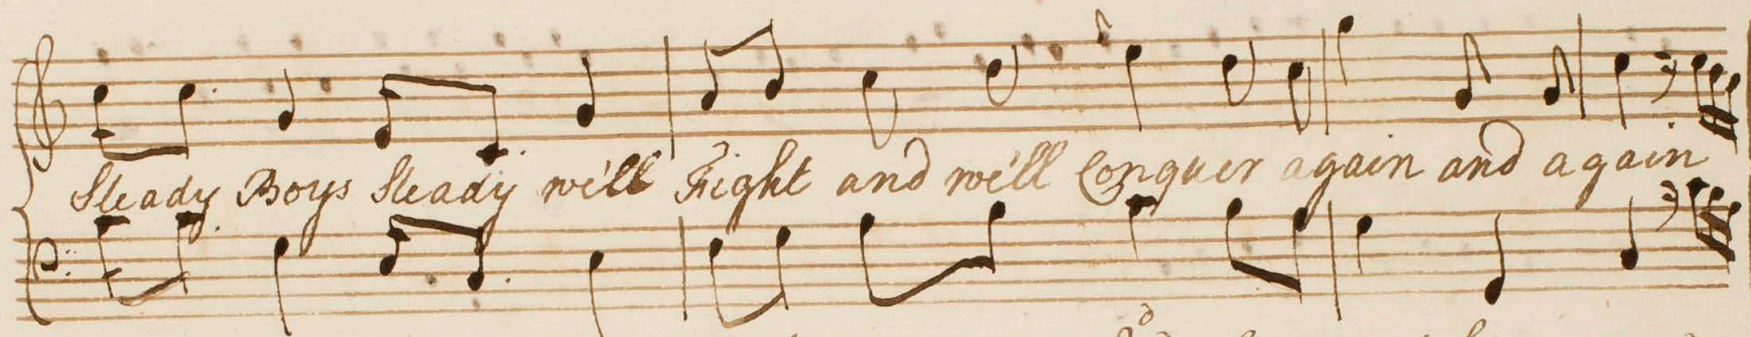 Steady Boys Steady we'll Fight and we'll Conquer again and again